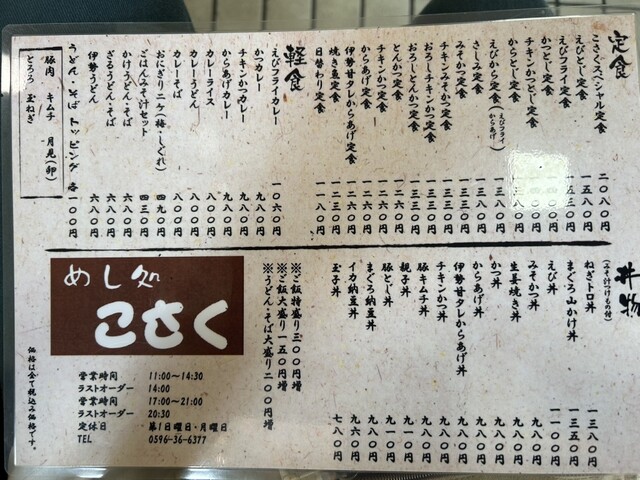 定食
こさくスペシャル定食 二〇八〇円
えびとじ定食 一五八〇円
えびフライ定食 一五三〇円
かつとじ定食
チキンかつとじ定食
からとじ定食
えびから定食(えびフライ からあげ) 一三八〇円
さしみ定食 一三八〇円
みそかつ定食 一三三〇円
チキンみそかつ定食 一三三〇円
おろしチキンかつ定食 一三三〇円
おろしとんかつ定食 一三三〇円
とんかつ定食 一二六〇円
チキンかつ定食 一二六〇円
からあげ定食 一二六〇円
伊勢甘タレからあげ定食 一二六〇円
焼き魚定食 一二三〇円
日替わり定食 一一八〇円
軽食
えびフライカレー 一〇六〇円
かつカレー 九八〇円
チキンかつカレー 九八〇円
からあげカレー 九八〇円
カレーライス 八〇〇円
カレーうどん 八〇〇円
カレーそば 八〇〇円
おにぎり二ケ(梅・しぐれ) 四九〇円
ごはんみそ汁セット 四三〇円
かけうどん・そば 六八〇円
ざるうどん・そば 六八〇円
伊勢うどん 六八〇円
うどん・そば トッピング 各一〇〇円
豚肉 キムチ 月見(卵)
とろろ 玉ねぎ
丼物
(みそ汁つけもの付)
ねぎトロ丼 一三八〇円
まぐろ山かけ丼 一三五〇円
えび丼 一一〇〇円
みそかつ丼 九八〇円
生姜焼き丼 九八〇円
かつ丼 九八〇円
からあげ丼 九八〇円
伊勢甘タレからあげ丼 九八〇円
チキンかつ丼 九八〇円
豚キムチ丼 九八〇円
親子丼 九八〇円
豚とじ丼 九八〇円
まぐろ納豆丼 一一〇〇円
イカ納豆丼 九六〇円
玉子丼 七八〇円
※ご飯特盛り三〇〇円増
※ご飯大盛り一五〇円増
※うどん・そば大盛り二〇〇円増
めし処
こさく
営業時間 11:00〜14:30
ラストオーダー 14:00
営業時間 17:00〜21:00
ラストオーダー 20:30
定休日 第1日曜日・月曜日
TEL 0596-36-6377
価格は全て税込み価格です。